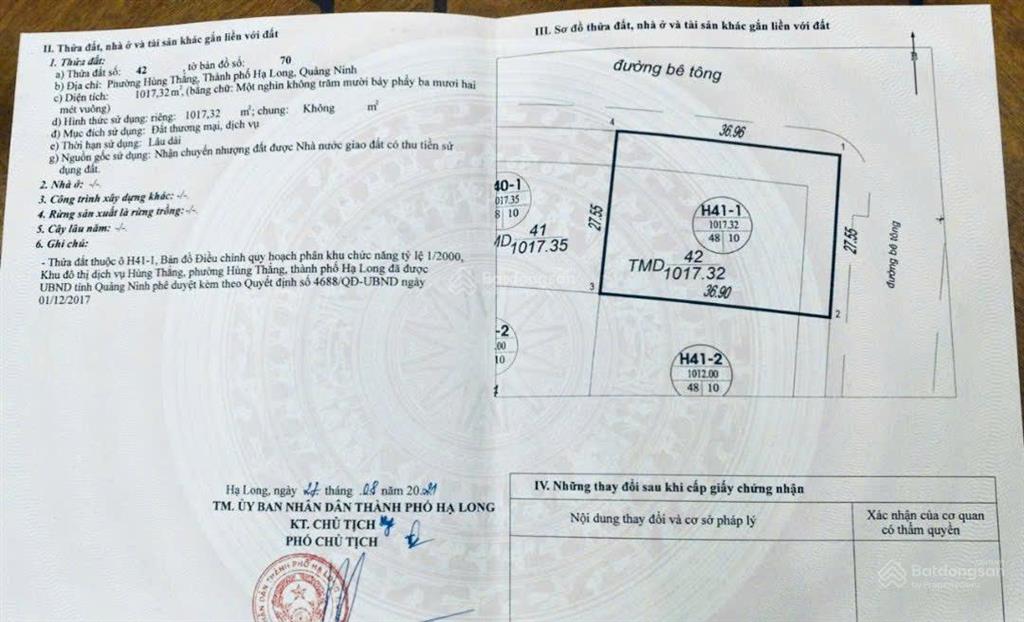 II. Thửa đất, nhà ở và tài sản khác gắn liền với đất
1. Thửa đất:
a) Thửa đất số: 42 , tờ bản đồ số: 70
b) Địa chỉ: Phường Hùng Thắng, Thành phố Hạ Long, Quảng Ninh
c) Diện tích: 1017,32 m², (bằng chữ: Một nghìn không trăm mười bảy phẩy ba mươi hai
mét vuông)
d) Hình thức sử dụng: riêng: 1017,32 m²; chung: Không m²
đ) Mục đích sử dụng: Đất thương mại, dịch vụ
e) Thời hạn sử dụng: Lâu dài
g) Nguồn gốc sử dụng: Nhận chuyển nhượng đất được Nhà nước giao đất có thu tiền sử
dụng đất.
2. Nhà ở: -/-
3. Công trình xây dựng khác: -/-
4. Rừng sản xuất là rừng trồng: -/-
5. Cây lâu năm: -/-
6. Ghi chú:
- Thửa đất thuộc ô H41-1, Bản đồ Điều chỉnh quy hoạch phân khu chức năng tỷ lệ 1/2000,
Khu đô thị dịch vụ Hùng Thắng, phường Hùng Thắng, thành phố Hạ Long đã được
UBND tỉnh Quảng Ninh phê duyệt kèm theo Quyết định số 4688/QĐ-UBND ngày
01/12/2017
Hạ Long, ngày 27 tháng 08 năm 2021
TM. ỦY BAN NHÂN DÂN THÀNH PHỐ HẠ LONG
KT. CHỦ TỊCH
PHÓ CHỦ TỊCH
DÂN THÀNH PHỐ HẠ LONG
III. Sơ đồ thửa đất, nhà ở và tài sản khác gắn liền với đất
B
đường bê tông
4
36.96
1
40-1
017.35
8 10
41
MD 1017.35
27.55
H41-1
1017.32
48 10
42
TMD 1017.32
27.55
đường bê tông
3
36.90
2
-2
.00
10
H41-2
1012.00
48 10
IV. Những thay đổi sau khi cấp giấy chứng nhận
Nội dung thay đổi và cơ sở pháp lý
Xác nhận của cơ quan
có thẩm quyền
Batdongsan
by PropertyGuru